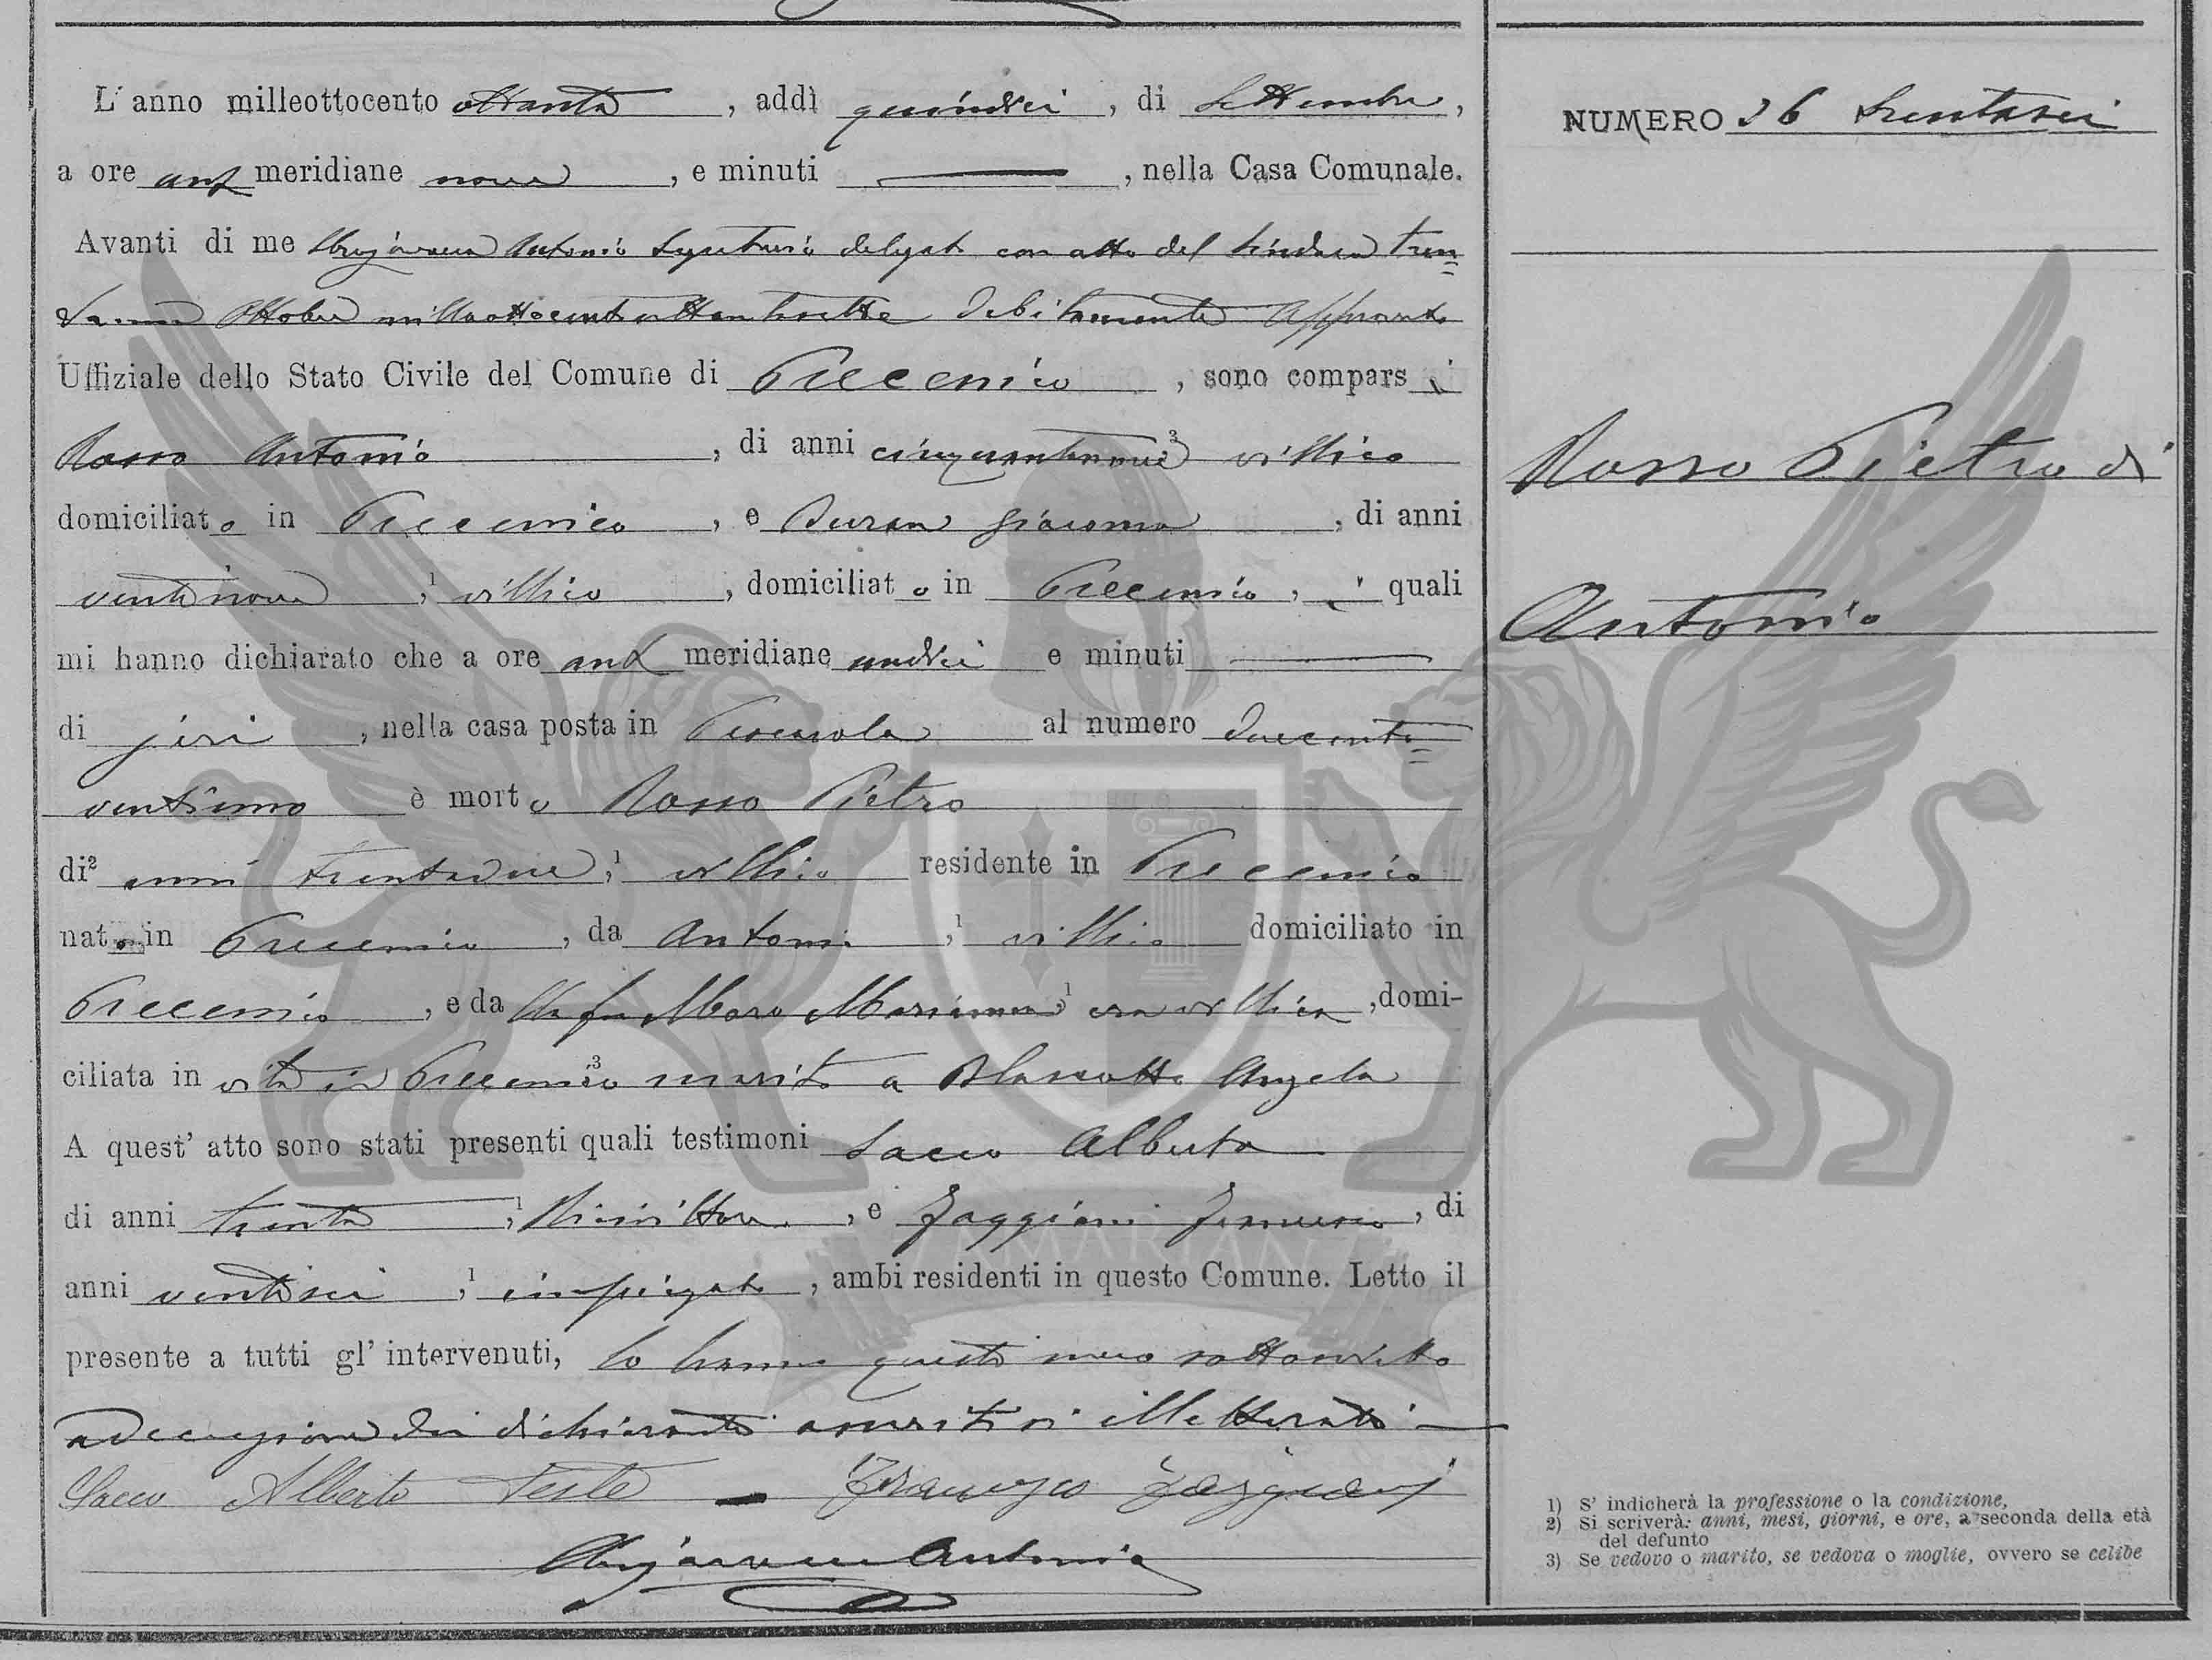 L'anno milleottocento ottanta, addì quindici, di Settembre,
a ore ant meridiane nove, e minuti —, nella Casa Comunale.
Avanti di me Antonio Segretario delegato con atto del Sindaco tren=
tauno Ottobre milleottocentosettantasette debitamente approvato
Uffiziale dello Stato Civile del Comune di Precenico, sono comparsi
Rosso Antonio, di anni cinquantanove ³ villico
domiciliato in Precenico, e Buran Giacomo, di anni
ventinove, ¹ villico, domiciliato in Precenico, i quali
mi hanno dichiarato che a ore ant meridiane undici e minuti —
di jeri, nella casa posta in al numero duecento=
ventiuno è morto Rosso Pietro
di² anni trentadue, ¹ villico residente in Precenico
nato in Precenico, da Antonio, ¹ villico domiciliato in
Precenico, e da fu Moro Marianna, ¹ era villica, domi-
ciliata in vita in Precenico ³ marito a Angela
A quest' atto sono stati presenti quali testimoni Sacco Alberto
di anni trenta, ¹, e Zaggiani Francesco, di
anni ventisei, ¹ impiegato, ambi residenti in questo Comune. Letto il
presente a tutti gl' intervenuti, lo hanno questi meco sottoscritto
ad eccezione dei dichiaranti assertisi illetterati —
Sacco Alberto Teste — Francesco Zaggiani
Antonio
NUMERO 36 trentasei
Rosso Pietro di
Antonio
1) S' indicherà la professione o la condizione,
2) Si scriverà: anni, mesi, giorni, e ore, a seconda della età
del defunto
3) Se vedovo o marito, se vedova o moglie, ovvero se celibe